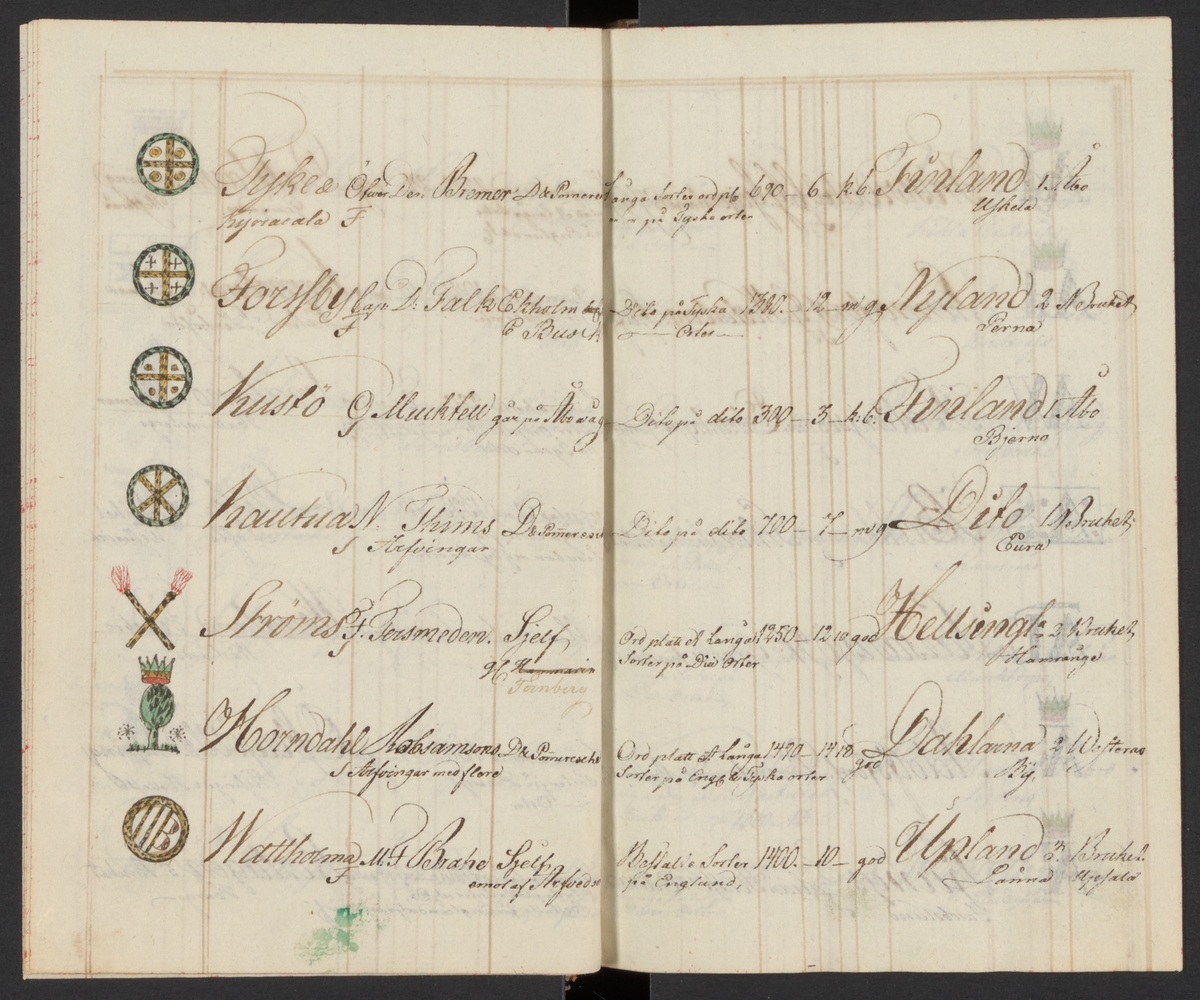 Tykeä Öfwerd. en Bremer D & Pomeresch Långa Sorter ord. på 690 – 6 k. 6. Finland 1. Åbo
Kyviacala F på Tyska orter Uskela
Forssby Cap: D: Falk Ekholm Dito på Tyska 1380. – 12 – m g Nyland 2 N Bruket,
F C Busch Orter Perna
Kustö G Mucktell går på Åbo wåg Dito på dito 300 – 3 – k. 6. Finland 1 Åbo
Bjerno
Kautua N. Thims D & Pomeresch Dito på dito 700 – 7 – m g Dito 1 N Bruket,
S Arfvingar Eura
Ströms F. Tersmeden. Sjelf, Ord platt et Långa 1250 – 12 10 god Hellsingl:d 2 Bruket,
gl Hammarin Sorter på Diu Orter Hamrånge
Törnberg
Horndahl Robsamsons D & Pomeresche Ord platt et Långa 1490 – 14 18 god Dahlarna 2 Westeras
S Arfvingar med flere Sorter på Eng & Tyska orter By,
Wattholma M. F Brahe Sjelf, Bestalie Sorter 1400. – 10 – god Upland 3. Bruket.
F emot af Arfveds på England, Lanna Upsala
WB